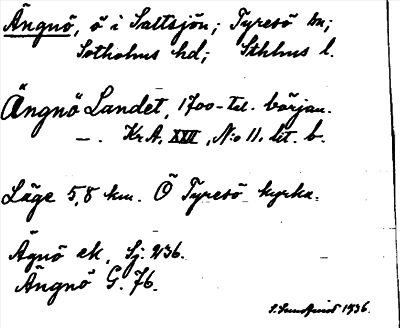 Ängnö, ö i Saltsjön; Tyresö sn;
Sotholms hd; Sthlms l.
Ängnö Landet, 1700-tal. början.
—. Kr. A. XXII, N:o 11. lit. b.
Läge 5,8 km. Ö Tyresö kyrka.
Ägnö ek. Sj. 236.
Ängnö G. 76.
1936.